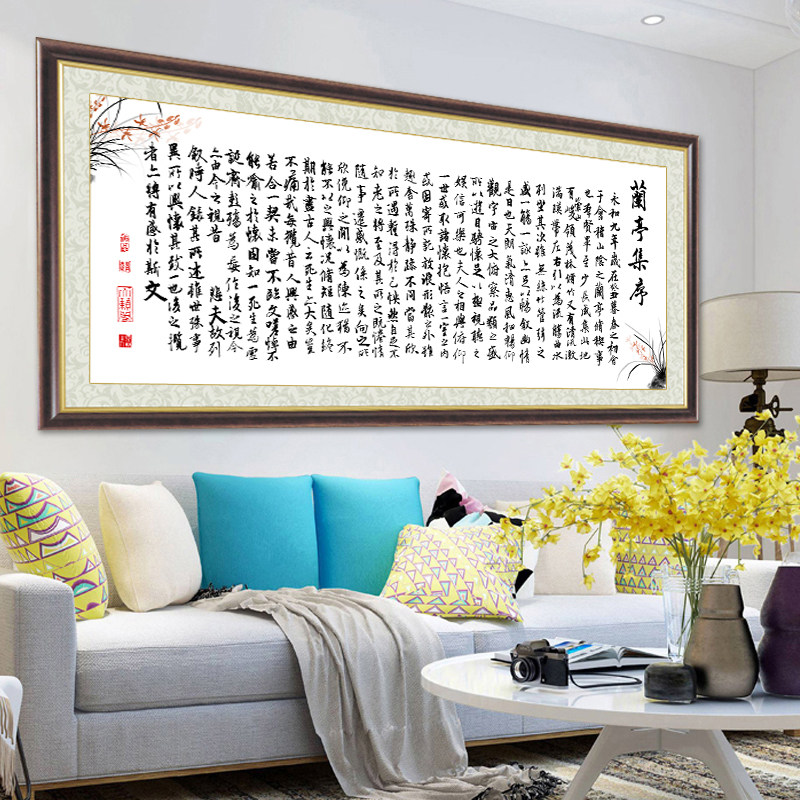 蘭亭集序
永和九年歲在癸丑暮春之初會
于會稽山陰之蘭亭脩禊事
也羣賢畢至少長咸集此地
有崇山峻領茂林脩竹又有清流激
湍暎帶左右引以為流觴曲水
列坐其次雖無絲竹管弦之
盛一觴一詠亦足以暢敘幽情
是日也天朗氣清惠風和暢仰
觀宇宙之大俯察品類之盛
所以遊目騁懷足以極視聽之
娛信可樂也夫人之相與俯仰
一世或取諸懷抱悟言一室之內
或因寄所託放浪形骸之外雖
趣舍萬殊靜躁不同當其欣
於所遇蹔得於己快然自足不
知老之將至及其所之既惓情
隨事遷感慨係之矣向之所
欣俛仰之間以為陳迹猶不
能不以之興懷況脩短隨化終
期於盡古人云死生亦大矣豈
不痛哉每攬昔人興感之由
若合一契未嘗不臨文嗟悼不
能喻之於懷固知一死生為虛
誕齊彭殤為妄作後之視今
亦由今之視昔 悲夫故列
敘時人錄其所述雖世殊事
異所以興懷其致一也後之攬
者亦將有感於斯文